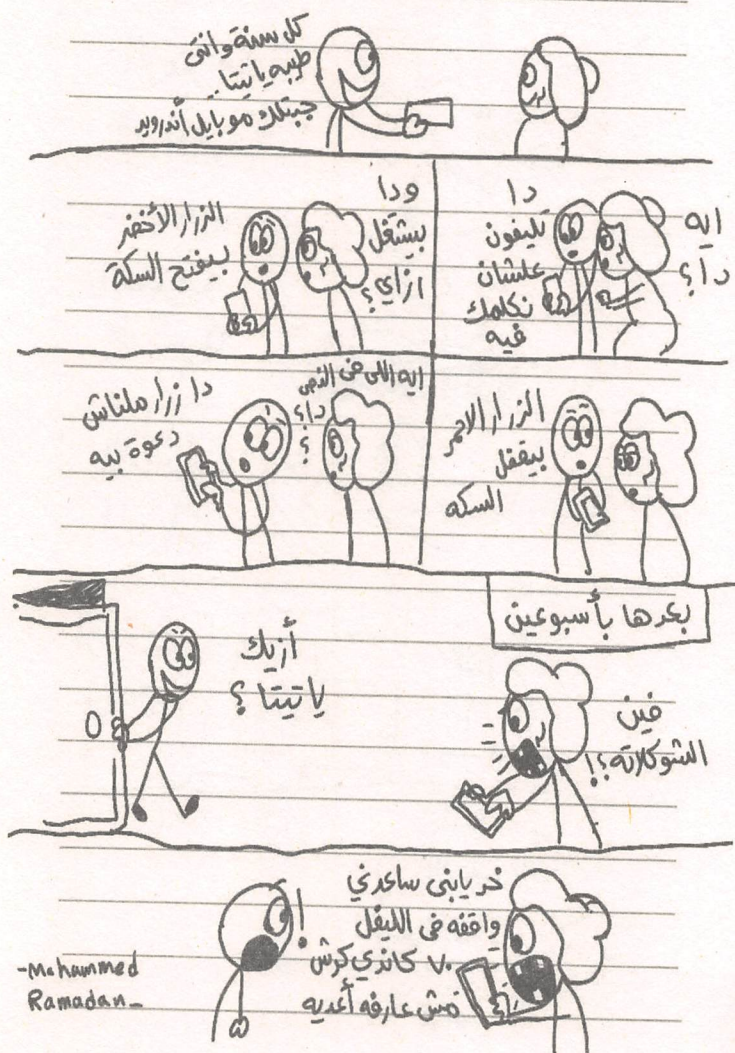 كل سنة وانتى
طيبه ياتيتا..
جبتلك موبايل أندرويد
ايه
دا؟
دا
تليفون
علشان
نكلمك
فيه
ودا
بيشتغل
ازاي؟
الزرار الأخضر
بيفتح السكة
الزرار الاحمر
بيقفل
السكه
ايه اللى فى النص
دا؟
؟
دا زرار ملناش
دعوة بيه
بعدها بأسبوعين
فين
الشوكلاته؟!
أزيك
ياتيتا؟
خد يابنى ساعدني
واقفه فى الليفل
٧٠ كاندي كرش
مش عارفه أعديه
!
-Mohammed
Ramadan-